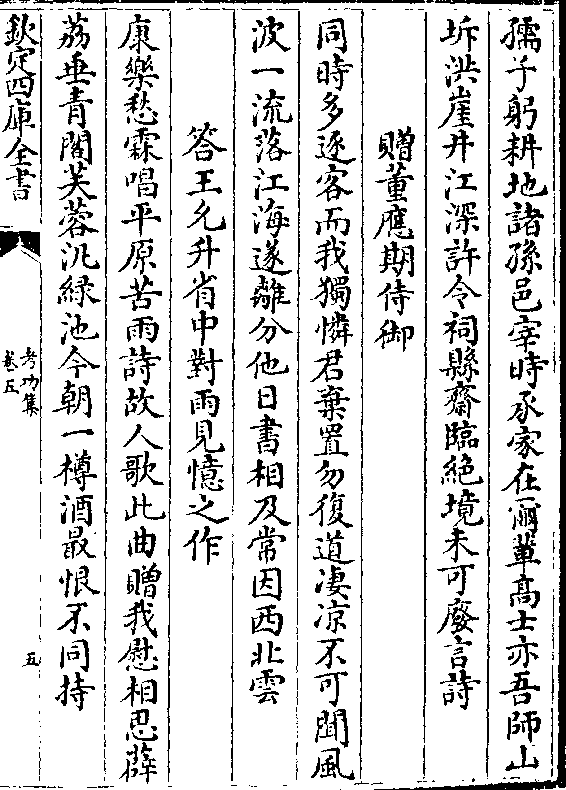 孺子躬耕地諸孫邑宰時承家在爾輩高士亦吾師山
坼洪崖井江深許令祠縣齋臨絶境未可廢言詩
贈董應期侍御
同時多逐客而我獨憐君棄置勿復道凄凉不可聞風
波一流落江海遂離分他日書相及常因西北雲
答王允升省中對雨見憶之作
康樂愁霖唱平原苦雨詩故人歌此曲贈我慰相思薜
荔垂青閣芙蓉汎緑池今朝一樽酒最恨不同持
欽定四庫全書
考功集
卷五
五